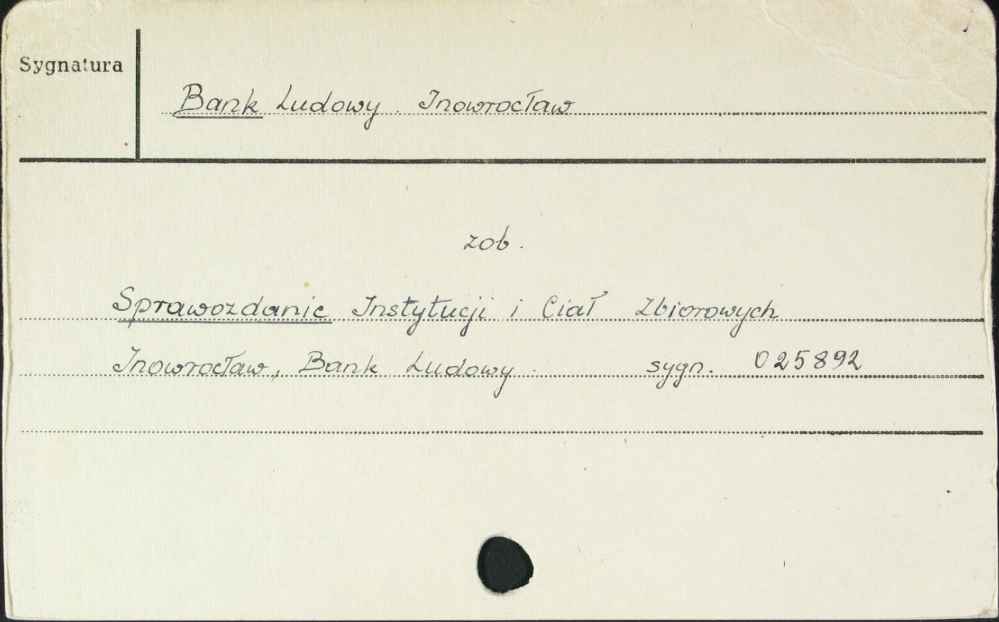 Sygnatura
Bank Ludowy. Inowrocław
zob.
Sprawozdanie Instytucji i Ciał Zbiorowych
Inowrocław, Bank Ludowy sygn. 025892